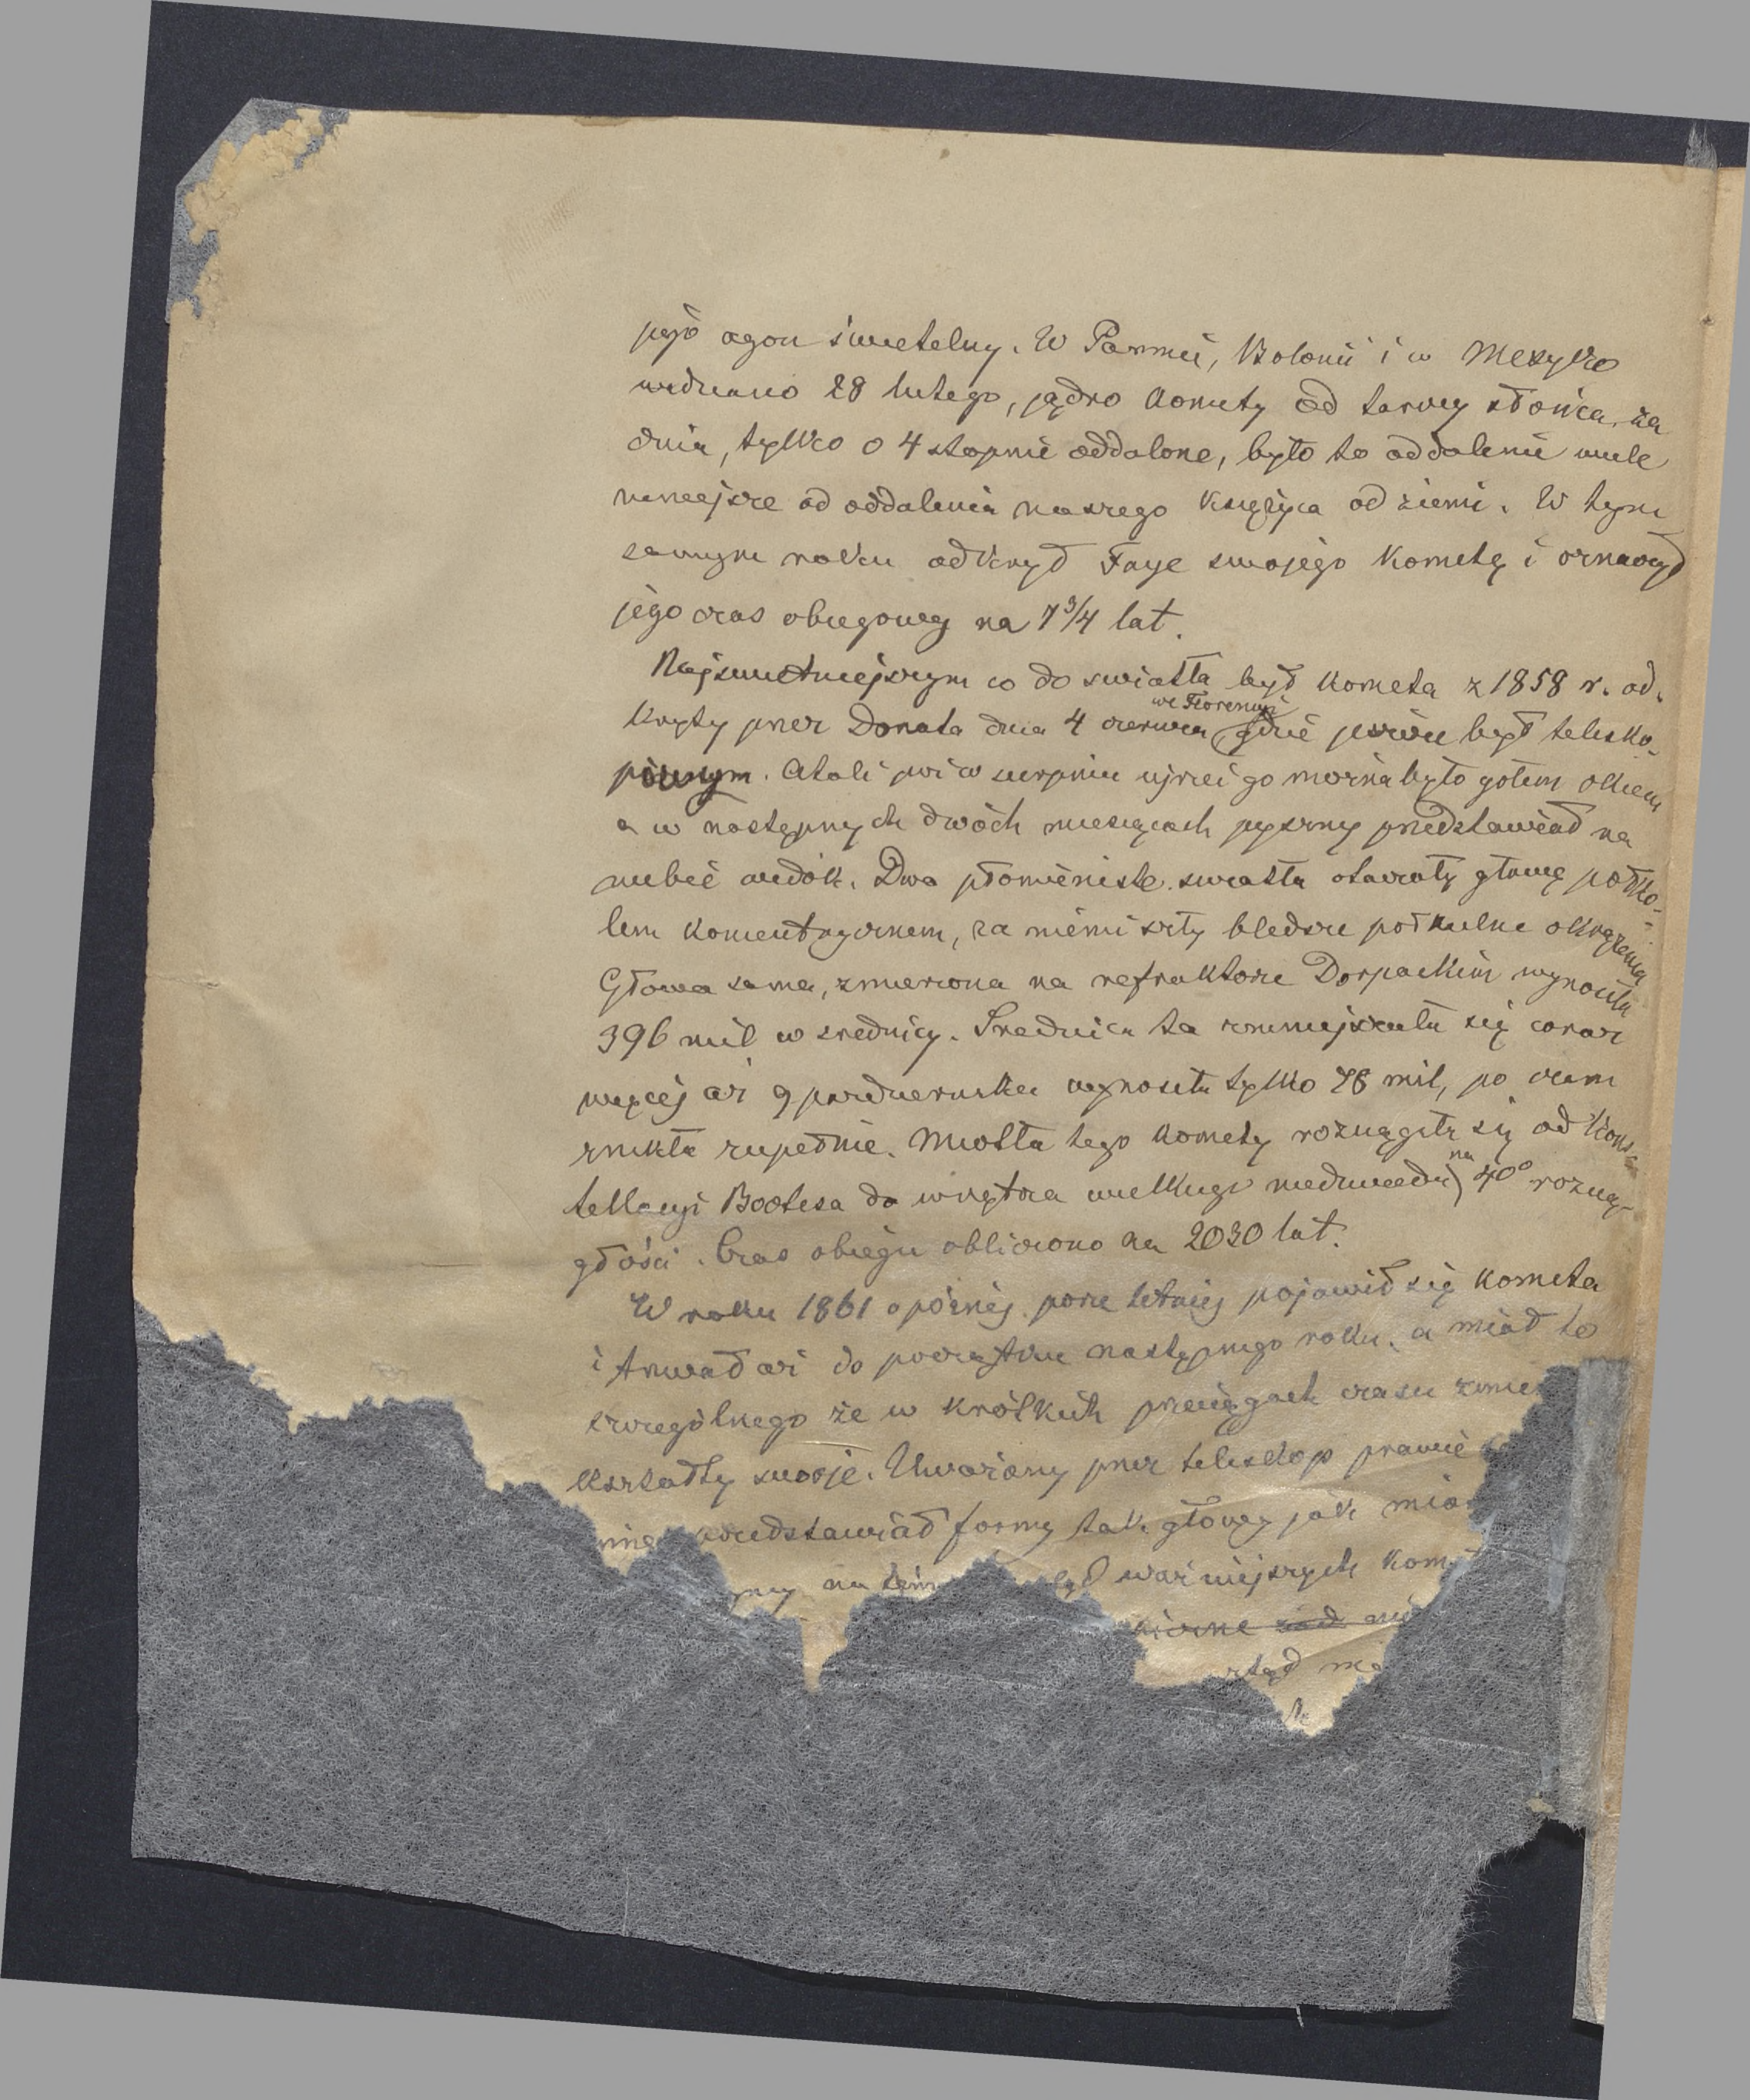 jego ogon świetelny. W Parmie, Bolonii i w Meksyko
widziano 28 lutego, jądro komety od tarczy słońca, za
dnia, tylko o 4 stopnie oddalone, było to oddalenie wiele
mniejsze od oddalenia naszego księżyca od ziemi. W tym
samym roku odkrył Faye swojego kometę i oznaczył
jego czas obiegowy na 7 3/4 lat.
Najświetniejszym co do swiatła był kometa z 1858 r. od-
kryty przez Donata dnia 4 czerwca we Florencyi, gdzie jeszcze był telesko-
picznym. Atoli już w sierpniu ujrzeć go można było gołem okiem
a w następnych dwóch miesiącach pyszny przedstawiał na
niebie widok. Dwa płomieniste swiatła otaczały głowę półko-
lem koncentrycznem, za niemi szły bledsze półkulne okrążenia
Głowa sama, zmierzona na refraktorze Dorpackim wynosiła
396 mil w srednicy. Srednica ta zmniejszała się coraz
więcej aż 9 pazdziernika wynosiła tylko 78 mil, po czem
znikła zupełnie. Miotła tego komety rozciągała się od Kons-
tellacyi Bootesa do wnętrza wielkiego niedzwiedzia na 40° rozcią-
głości. Czas obiegu obliczono na 2030 lat.
W roku 1861 o póżnéj porze letniej pojawił się kometa
i trwał aż do początku następnego roku, a miał to
szczególnego że w krótkich przeciągach czasu zmie
kształty swoje. Uważany przez teleskop prawie
inne przedstawiał formy tak głowy jak mio
na tém ważniejszych kom